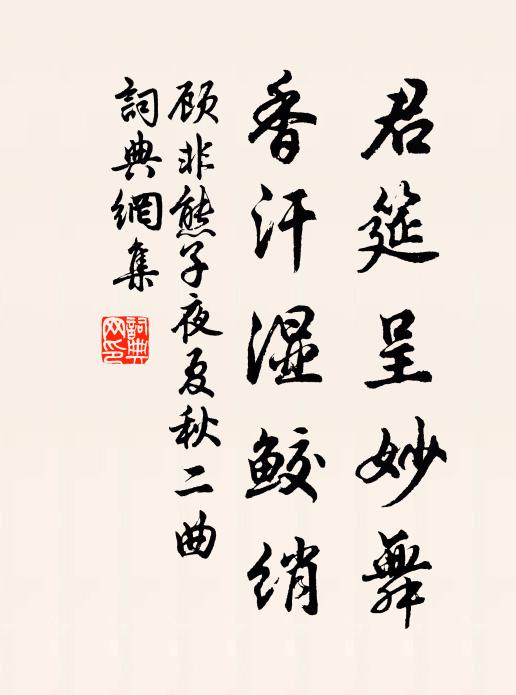 君筵呈妙舞
香汗湿鲛绡
顾非熊子夜夏秋二曲
詞典網集
詞典
网印